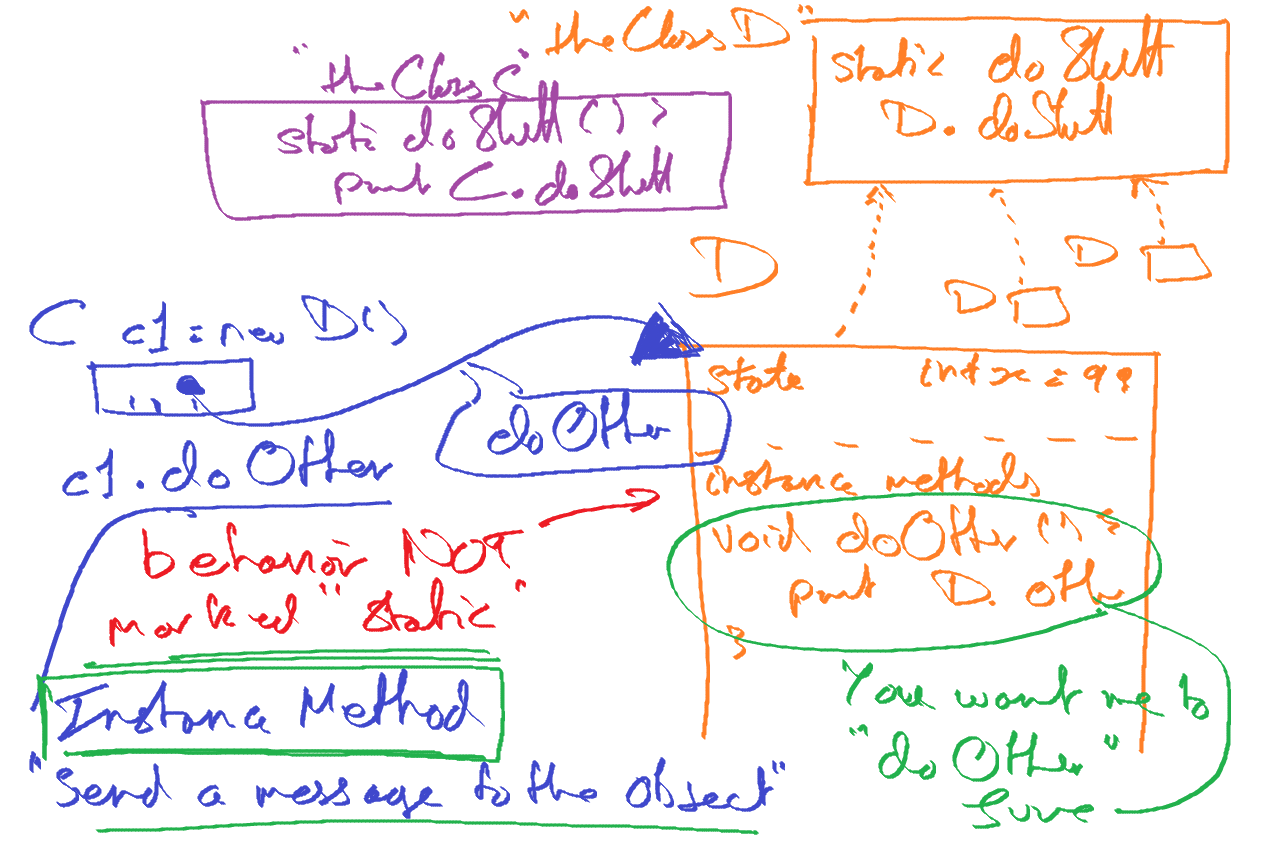 "the Class D"
static doStuff
D. doStuff
"the Class C"
static doStuff () {
print C. doStuff
D
D
D
C c1 = new D()
state int x = 99
c1. do Other
do Other
instance methods
void doOther () {
print D. other
}
behavior NOT
marked "static"
Instance Method
"Send a message to the object"
You want me to
"do Other"
Sure